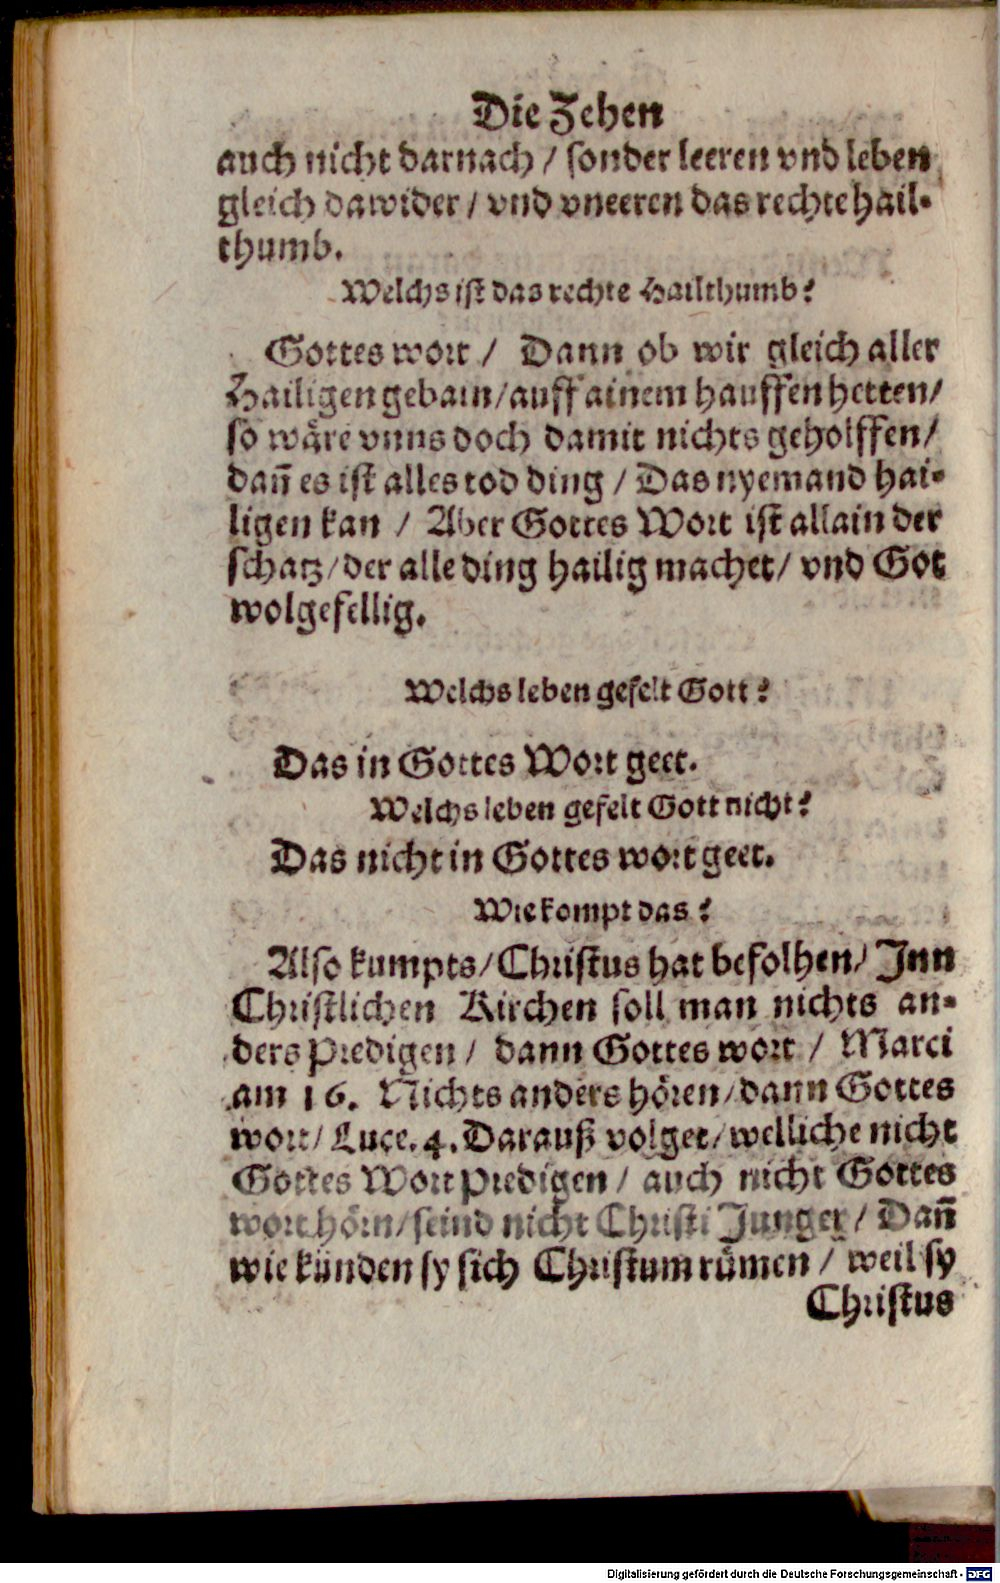 Die Zehen
auch nicht darnach / sonder leeren vnd leben
gleich dawider / vnd vneeren das rechte hail-
thumb.
Welchs ist das rechte Hailthumb?
Gottes wort / Dann ob wir gleich aller
Hailigen gebain / auff ainem hauffen hetten /
so wäre vnns doch damit nichts geholffen /
dañ es ist alles tod ding / Das nyemand hai-
ligen kan / Aber Gottes Wort ist allain der
schatz / der alle ding hailig machet / vnd Got
wolgefellig.
Welchs leben gefelt Gott?
Das in Gottes Wort geet.
Welchs leben gefelt Gott nicht?
Das nicht in Gottes wort geet.
Wie kompt das?
Also kumpts / Christus hat befolhen / Inn
Christlichen Kirchen soll man nichts an-
ders Predigen / dann Gottes wort / Marci
am 16. Nichts anders hören / dann Gottes
wort / Luce. 4. Darauß volget / welliche nicht
Gottes Wort predigen / auch nicht Gottes
wort hörn / seind nicht Christi Junger / Dañ
wie künden sy sich Christum rümen / weil sy
Christus
Digitalisierung gefördert durch die Deutsche Forschungsgemeinschaft - DFG